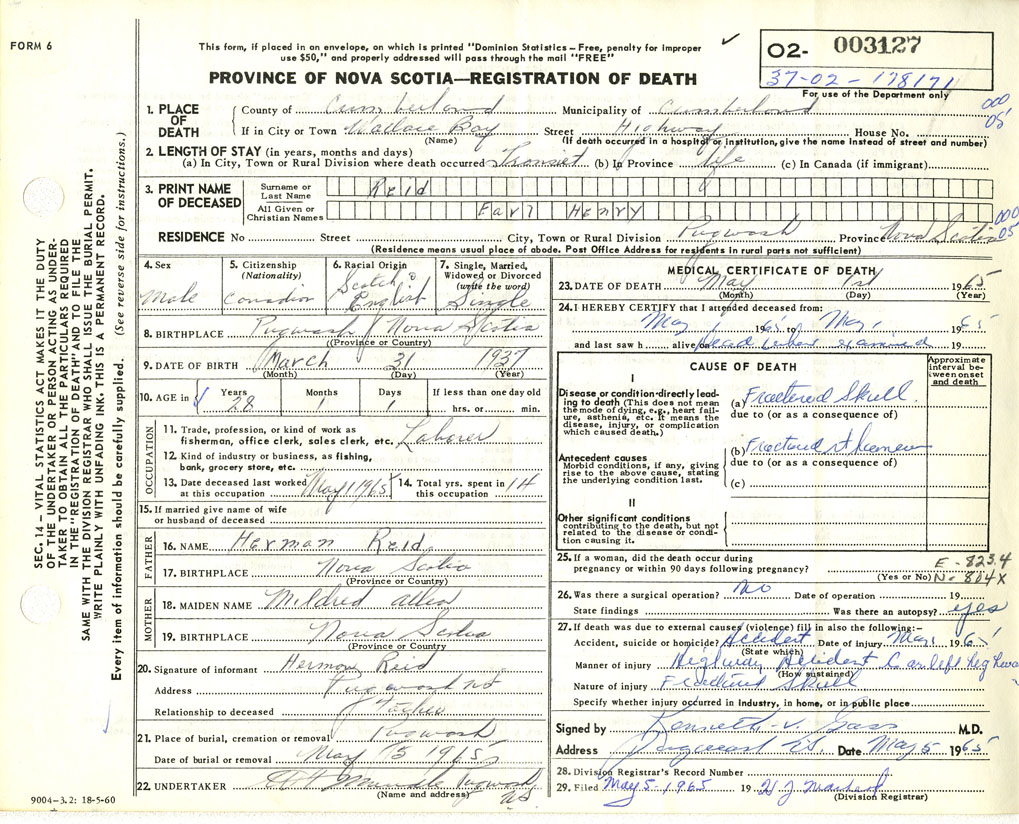 FORM 6
This form, if placed in an envelope, on which is printed "Dominion Statistics – Free, penalty for improper
use $50," and properly addressed will pass through the mail "FREE"
PROVINCE OF NOVA SCOTIA—REGISTRATION OF DEATH
02- 003127
37-02-178171
For use of the Department only
1. PLACE OF DEATH
County of Cumberland Municipality of Cumberland
000
05
If in City or Town Wallace Bay Street Highway House No.
(Name) (If death occurred in a hospital or institution, give the name instead of street and number)
2. LENGTH OF STAY (in years, months and days)
(a) In City, Town or Rural Division where death occurred Transiet (b) In Province life (c) In Canada (if immigrant)
3. PRINT NAME OF DECEASED
Surname or Last Name Reid
All Given or Christian Names Earl Henry
000
05
RESIDENCE No Street City, Town or Rural Division Pugwash Province Nova Scotia
(Residence means usual place of abode. Post Office Address for residents in rural parts not sufficient)
4. Sex
Male
5. Citizenship
(Nationality)
Canadian
6. Racial Origin
Scotch &
English
7. Single, Married,
Widowed or Divorced
(write the word)
Single
8. BIRTHPLACE Pugwash Nova Scotia
(Province or Country)
9. DATE OF BIRTH March 31 1937
(Month) (Day) (Year)
10. AGE in
Years Months Days If less than one day old
28 1 1 hrs. or min.
OCCUPATION
11. Trade, profession, or kind of work as
fisherman, office clerk, sales clerk, etc. Laborer
12. Kind of industry or business, as fishing,
bank, grocery store, etc.
13. Date deceased last worked
at this occupation May 1 1965
14. Total yrs. spent in
this occupation 14
15. If married give name of wife
or husband of deceased
FATHER
16. NAME Herman Reid
17. BIRTHPLACE Nova Scotia
(Province or Country)
MOTHER
18. MAIDEN NAME Mildred Allen
19. BIRTHPLACE Nova Scotia
(Province or Country)
20. Signature of informant Herman Reid
Address Pugwash NS
Relationship to deceased Father
21. Place of burial, cremation or removal Pugwash
Date of burial or removal May 5 1965
22. UNDERTAKER Pugwash
(Name and address) NS
MEDICAL CERTIFICATE OF DEATH
23. DATE OF DEATH May 1st 1965
(Month) (Day) (Year)
24. I HEREBY CERTIFY that I attended deceased from:
May 1 1965 to May 1 1965
and last saw h alive on Dead when examined 19
CAUSE OF DEATH
Approximate
interval be-
tween onset
and death
I
Disease or condition directly lead-
ing to death (This does not mean
the mode of dying, e.g., heart fail-
ure, asthenia, etc. It means the
disease, injury, or complication
which caused death.)
(a) Fractered Skull
due to (or as a consequence of)
Antecedent causes
Morbid conditions, if any, giving
rise to the above cause, stating
the underlying condition last.
(b) Fractured
due to (or as a consequence of)
(c)
II
Other significant conditions
contributing to the death, but not
related to the disease or condi-
tion causing it.
25. If a woman, did the death occur during
pregnancy or within 90 days following pregnancy?
(Yes or No)
E-823.4
N-804X
26. Was there a surgical operation? No Date of operation 19
State findings Was there an autopsy? yes
27. If death was due to external causes (violence) fill in also the following:-
Accident, suicide or homicide? Accident Date of injury May 1 1965
(State which)
Manner of injury Highway Accident Car left highway
(How sustained)
Nature of injury Fractured Skull
Specify whether injury occurred in industry, in home, or in public place
Signed by Kenneth V. Gass M.D.
Address N.S. Date May 5 1965
28. Division Registrar's Record Number
29. Filed May 5 - 1965 19
(Division Registrar)
SEC. 14 – VITAL STATISTICS ACT MAKES IT THE DUTY
OF THE UNDERTAKER OR PERSON ACTING AS UNDER-
TAKER TO OBTAIN ALL THE PARTICULARS REQUIRED
IN THE "REGISTRATION OF DEATH" AND TO FILE THE
SAME WITH THE DIVISION REGISTRAR WHO SHALL ISSUE THE BURIAL PERMIT.
WRITE PLAINLY WITH UNFADING INK. THIS IS A PERMANENT RECORD.
Every item of information should be carefully supplied. (See reverse side for instructions.)
9004–3.2: 18-5-60